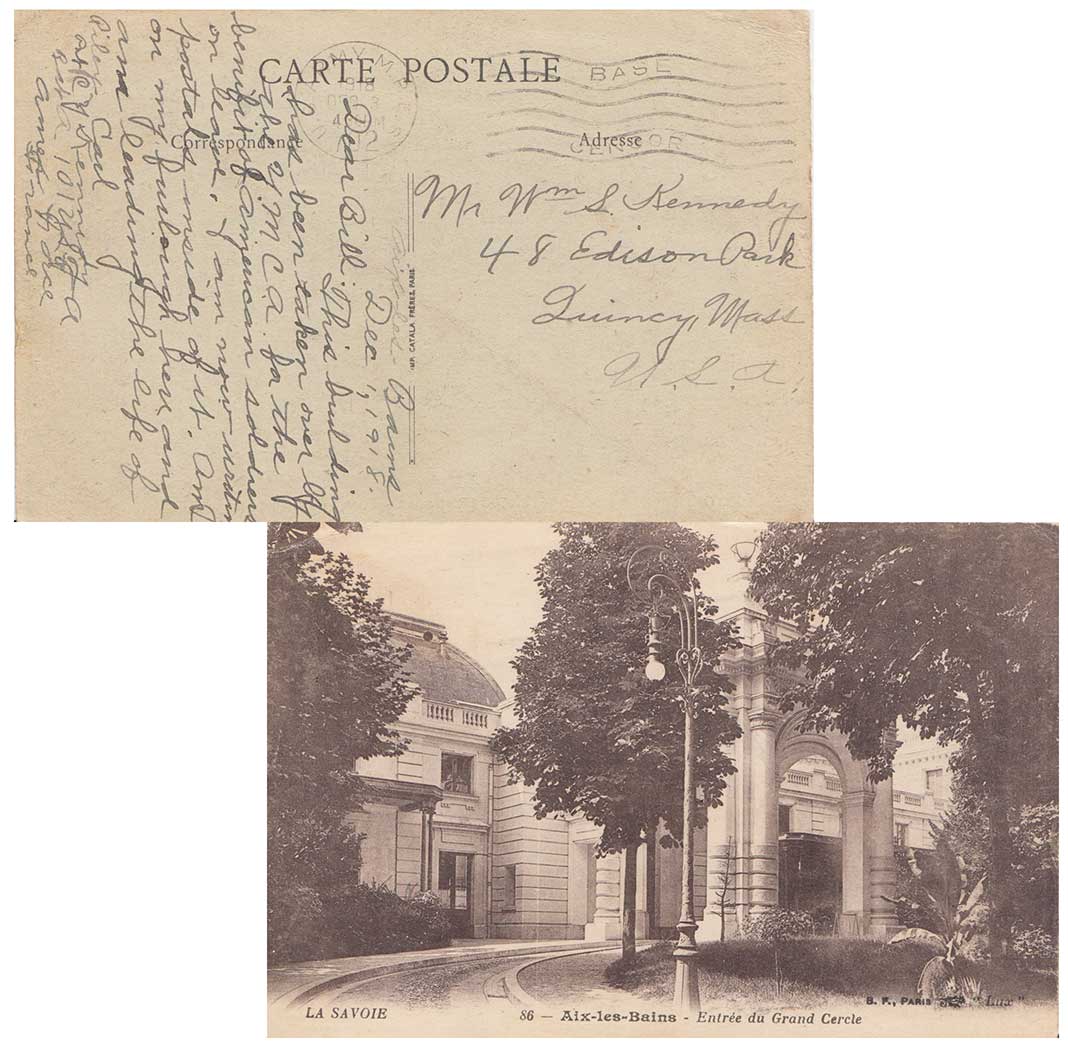 CARTE POSTALE
BASE
CENSOR
Correspondance
Adresse
Mr Wm S. Kennedy
48 Edison Park
Quincy, Mass
U.S.A.
IMP. CATALA FRÈRES, PARIS
Bains
Dec 1, 1918.
Dear Bill: This building
has been taken over by
the Y M C A for the
benefit of American soldiers
on leave. I am now writin
postals inside of it. Am
on my furlough here and
am leading the life of
Riley. Carl
Kennedy
101
France
LA SAVOIE
86 — Aix-les-Bains - Entrée du Grand Cercle
B. F., PARIS
"Lux"